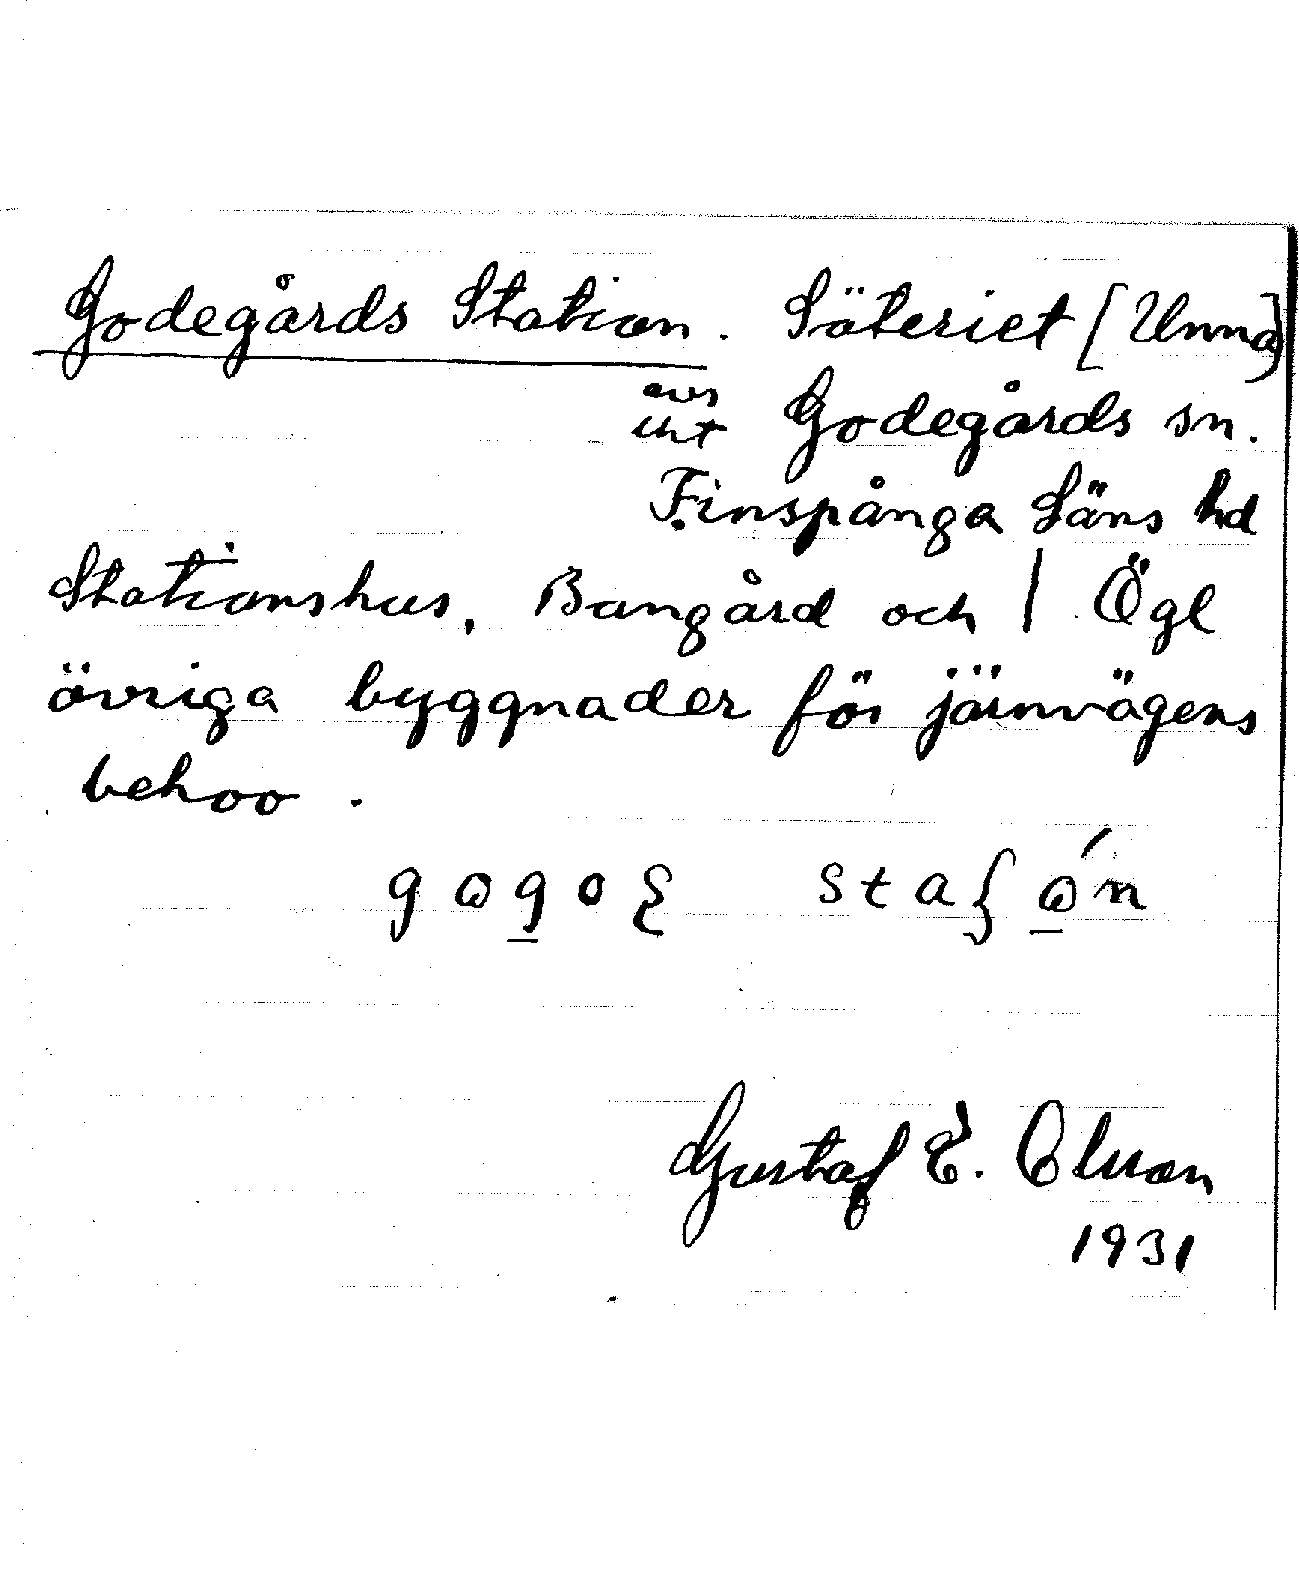 Godegårds Station. Säteriet [Unna]
avs
uht Godegårds sn.
Finspånga Läns hd
Stationshus, Bangård och | Ögl
övriga byggnader för järnvägens
behov.
Gustaf E. Olsson
1931